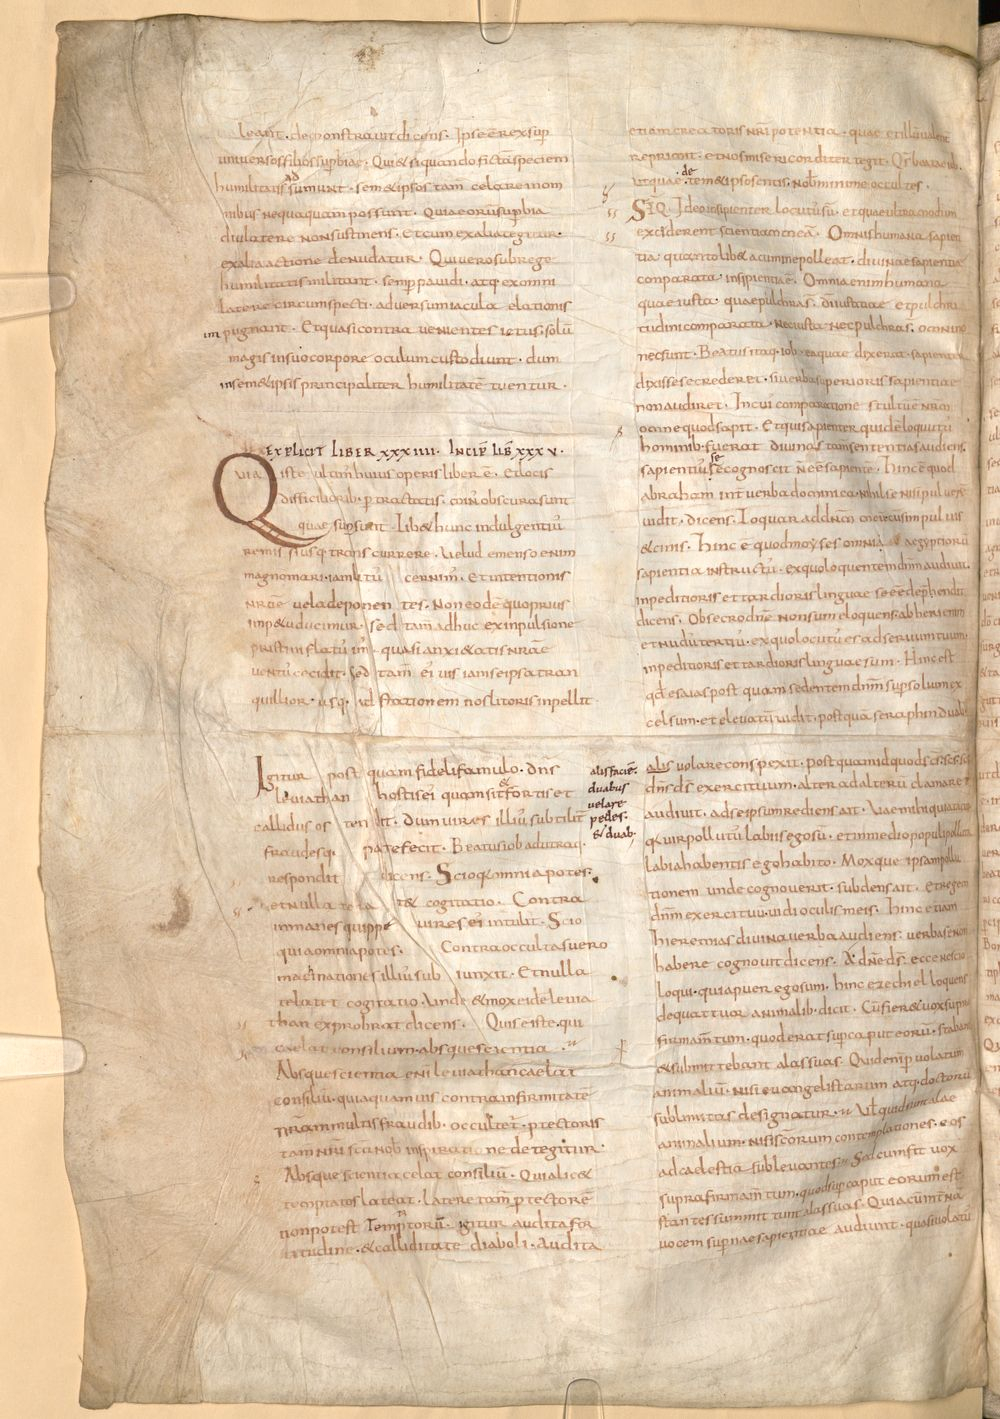 leant. demonstravit dicens. Ipse ē rex sup
universos filios supbiae. Qui & si quando fictā speciem
humilitatis adsumunt. sem& ipsos tam̄ celare in om
nibus nequaquam possunt. Quia eorū supbia
diu latere non sustinens. Et cum ex alia tegitur.
ex alia actione denudatur. Qui vero sub rege
humilitatis militant. semp pavidi. atq ex omni
latere circumspecti. adversum iacula elationis
impugnant. Et quasi contra venientes ictus. solū
magis in suo corpore oculum custodiunt. dum
in sem&ipsis principaliter humilitatē tuentur.
EXPLICIT LIBER XXXIIII. INCIP̄ LIB̄ XXXV.
Quia iste ultim̄ huius operis liber ē. Et locis
difficiliorib. ptractatis. min̄ obscura sunt
quae supsunt. Lib& hunc indulgentiū
remissiusq transcurrere. Velud emenso enim
magno mari. iam litū cernim̄. Et intentionis
nrāe vela deponentes. Non eodē quo prius
imp&u ducimur. sed tam̄ adhuc ex inpulsione
pristini flatū im̄. quasi anxi&atis nrāe
ventū cecidit. Sed tam̄ ei vis iam se ipsa tran
quillior. usq ad stationem nos litoris inpellit.
Igitur postquam fideli famulo. dn̄s
leviathan hostis ei quam sit & fortis et
callidus ostendit. Dum vires illiū subtilit
fraudesq. patefecit. Beatus iob ad utraq.
respondit dicens. Scio q omnia potes.
et nulla te lat& cogitatio. Contra
inmanes quippe vires ei intulit. Scio
quia omnia potes. Contra occultas vero
machinationes illiū subiunxit. Et nulla
te lat& cogitatio. Unde & mox eide levia
than exprobrat dicens. Quis est iste. qui
caelat consilium. absque scientia.
Absque scientia enī leviathan caelat
consiliū. quia quamvis contra infirmitatē
nrām multis fraudib. occultet. ptectoris
tam nrī sc̄a nob inspiratione detegitur.
Absque scientia celat consiliū. Quia lic&
temptatos lateat. Latere tam̄ ptectorē
non potest Temptatorū. igitur audita for
titudine. & calliditate diaboli. Audita
alis faciē.
duabus
velare
pedes.
& duab.
etiam creatoris nr̄i potentia. quae et illū valent
reprimit. et nos misericorditer tegit.
ut quae de tem&ipso sentis. nob minime occultes.
SEQ. Ideo insipienter locutus sū. et quae ultra modum
excederent scientiam meā. Omnis humana sapien
tia quantolib& acumine polleat. divinae sapientiae
conparata. insipientia ē. Omnia enim humana
quae iusta. quae pulchra s̄. di iustitiae et pulchri
tudini comparata. Nec iusta nec pulchra s̄. omnino
nec sunt. Beatus itaq. iob. ea quae dixerat. sapienter
dixisse se crederet. si verba superioris sapientiae
non audiret. In cui comparatione stultū ē nrm̄
omne quod sapit. Et qui sapienter quidē loquutū
hominib. fuerat divinas tam̄ sententias audiens.
sapientiū se cognoscit nē eē sapiente. Hinc ē quod
abraham int verba dominica. nihil se nisi pulverē
vidit. dicens. Loquar ad dnm̄ meū cū sim pulvis
& cinis. Hinc ē quod moyses omni a aegyptiorū
sapientia instructū. ex quo loquentem dnm̄ audivit.
inpeditioris et tardioris linguae se eē dephendit
dicens. Obsecro dnē. non sum eloquens. ab heri enim
et nudū tertiū. ex quo locutū es ad servum tuum.
inpeditioris et tardioris linguae sum. Hinc est
qd esaias postquam sedentem dnm̄ sup solium ex
celsum. et elevatū vidit. postquā seraphin duab
alis volare conspexit. postquam id quod sc̄s. sc̄s. sc̄s
dn̄s. d̄s exercituum. alter ad alterū clamaret
audivit. ad se ipsum rediens ait. Vae mihi quia tacui
q vir pollutū labiis ego sū. et in medio populi polluta
labia habentis ego habito. Moxque ipsam pollu
tionem unde cognoverit. subdens ait. Et regem
dnm̄ exercituū. vidi oculis meis. Hinc etiam
hieremias divina verba audiens. verba se non
habere cognovit dicens. A. dnē d̄s. ecce nescio
loqui. quia puer ego sum. hinc ezechiel loquens
de quattuor animalib. dicit. Cū fier& vox supra
firmam̄tum. quod erat sup caput eorū. stabant
& submittebant alas suas. Quid enim p volatum
animaliū. nisi evangelistarum atq. doctorū
sublimitas designatur. Vel quid sunt alae
animalium. nisi scōrum contemplationes. eos
ad caelestia sublevantes. Sed cum fit vox
supra firmam̄tum. quod sup caput eorum est.
stantes summittunt alas suas. Quia cum intna
vocem supnae sapientiae audiunt. quasi volatū